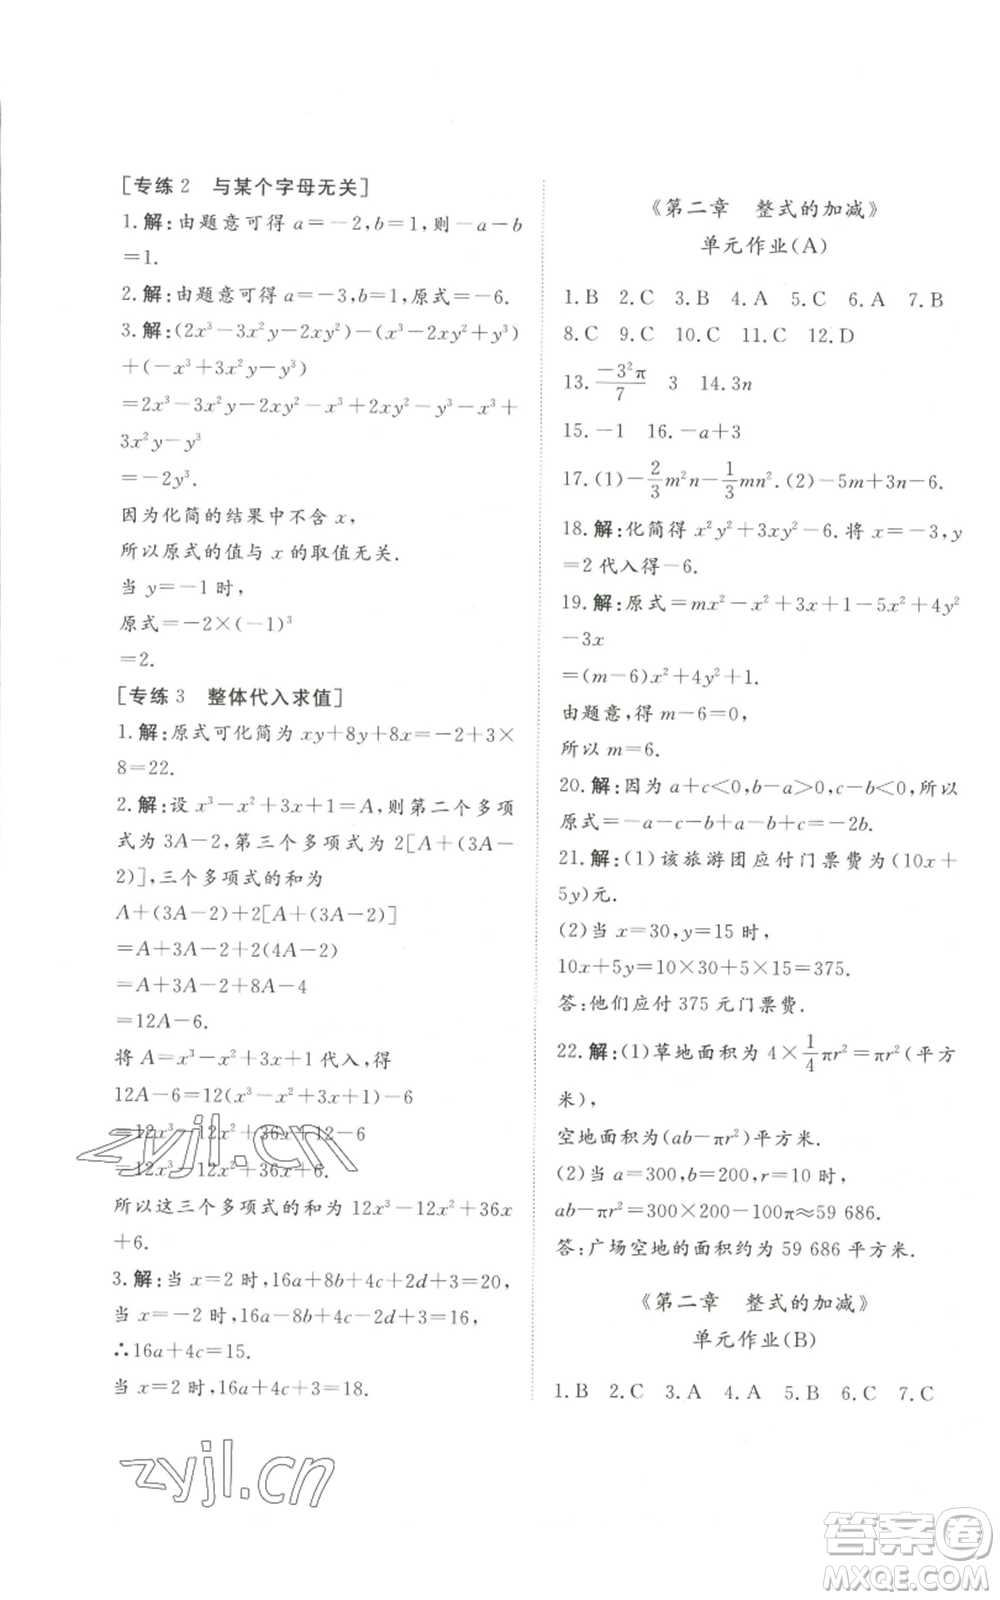 [专练2 与某个字母无关]
1.解:由题意可得a=-2,b=1,则-a-b
=1.
2.解:由题意可得a=-3,b=1,原式=-6.
3.解:(2x³-3x²y-2xy²)-(x³-2xy²+y³)
+(-x³+3x²y-y³)
=2x³-3x²y-2xy²-x³+2xy²-y³-x³+
3x²y-y³
=-2y³.
因为化简的结果中不含x,
所以原式的值与x的取值无关.
当y=-1时,
原式=-2×(-1)³
=2.
[专练3 整体代入求值]
1.解:原式可化简为xy+8y+8x=-2+3×
8=22.
2.解:设x³-x²+3x+1=A,则第二个多项
式为3A-2,第三个多项式为2[A+(3A-
2)],三个多项式的和为
A+(3A-2)+2[A+(3A-2)]
=A+3A-2+2(4A-2)
=A+3A-2+8A-4
=12A-6.
将A=x³-x²+3x+1代入,得
12A-6=12(x³-x²+3x+1)-6
=12x³-12x²+36x+12-6
=12x³-12x²+36x+6.
所以这三个多项式的和为12x³-12x²+36x
+6.
3.解:当x=2时,16a+8b+4c+2d+3=20,
当x=-2时,16a-8b+4c-2d+3=16,
∴16a+4c=15.
当x=2时,16a+4c+3=18.
《第二章 整式的加减》
单元作业(A)
1.B 2.C 3.B 4.A 5.C 6.A 7.B
8.C 9.C 10.C 11.C 12.D
13.\frac{-3²π}{7} 3 14.3n
15.-1 16.-a+3
17.(1)-\frac{2}{3}m²n-\frac{1}{3}mn².(2)-5m+3n-6.
18.解:化简得x²y²+3xy-6.将x=-3,y
=2代入得-6.
19.解:原式=mx²-x²+3x+1-5x²+4y²
-3x
=(m-6)x²+4y²+1.
由题意,得m-6=0,
所以m=6.
20.解:因为a+c<0,b-a>0,c-b<0,所以
原式=-a-c-b+a-b+c=-2b.
21.解:(1)该旅游团应付门票费为(10x+
5y)元.
(2)当x=30,y=15时,
10x+5y=10×30+5×15=375.
答:他们应付375元门票费.
22.解:(1)草地面积为4×\frac{1}{4}πr²=πr²(平方
米),
空地面积为(ab-πr²)平方米.
(2)当a=300,b=200,r=10时,
ab-πr²=300×200-100π≈59 686.
答:广场空地的面积约为59 686平方米.
《第二章 整式的加减》
单元作业(B)
1.B 2.C 3.A 4.A 5.B 6.C 7.C
zyjl.cn
zyjl.cn
答案卷
MXQE.COM